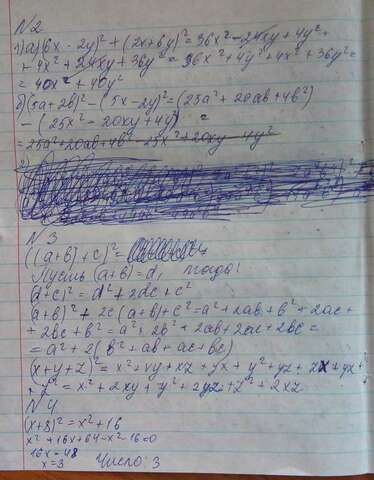 N2
1) а) (6x - 2y)² + (2x + 6y)² = 36x² - 24xy + 4y² +
+ 4x² + 24xy + 36y² = 36x² + 4y² + 4x² + 36y² =
= 40x² + 40y²
б) (5a + 2b)² - (5x - 2y)² = (25a² + 20ab + 4b²)
- (25x² - 20xy + 4y²) =
= 25a² + 20ab + 4b² - 25x² + 20xy - 4y²
2)
N3
((a+b)+c)² =
Пусть (a+b) = d, тогда:
(d+c)² = d² + 2dc + c²
(a+b)² + 2c(a+b) + c² = a² + 2ab + b² + 2ac +
+ 2bc + b² = a² + 2b² + 2ab + 2ac + 2bc =
= a² + 2(b² + ab + ac + bc)
(x+y+z)² = x² + xy + xz + yx + y² + yz + zx + yx +
+ z² = x² + 2xy + y² + 2yz + z² + 2xz
N4
(x+8)² = x² + 16
x² + 16x + 64 - x² - 16 = 0
16x = 48
x = 3 Число: 3